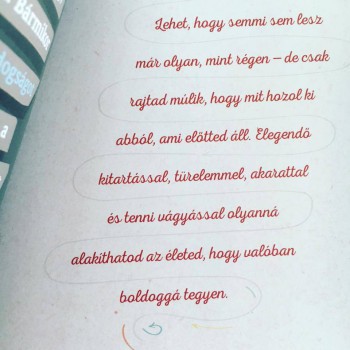 Bármilye
dogságo
a
Lehet, hogy semmi sem lesz
már olyan, mint régen – de csak
rajtad múlik, hogy mit hozol ki
abból, ami előtted áll. Elegendő
kitartással, türelemmel, akarattal
és tenni vágyással olyanná
alakíthatod az életed, hogy valóban
boldoggá tegyen.